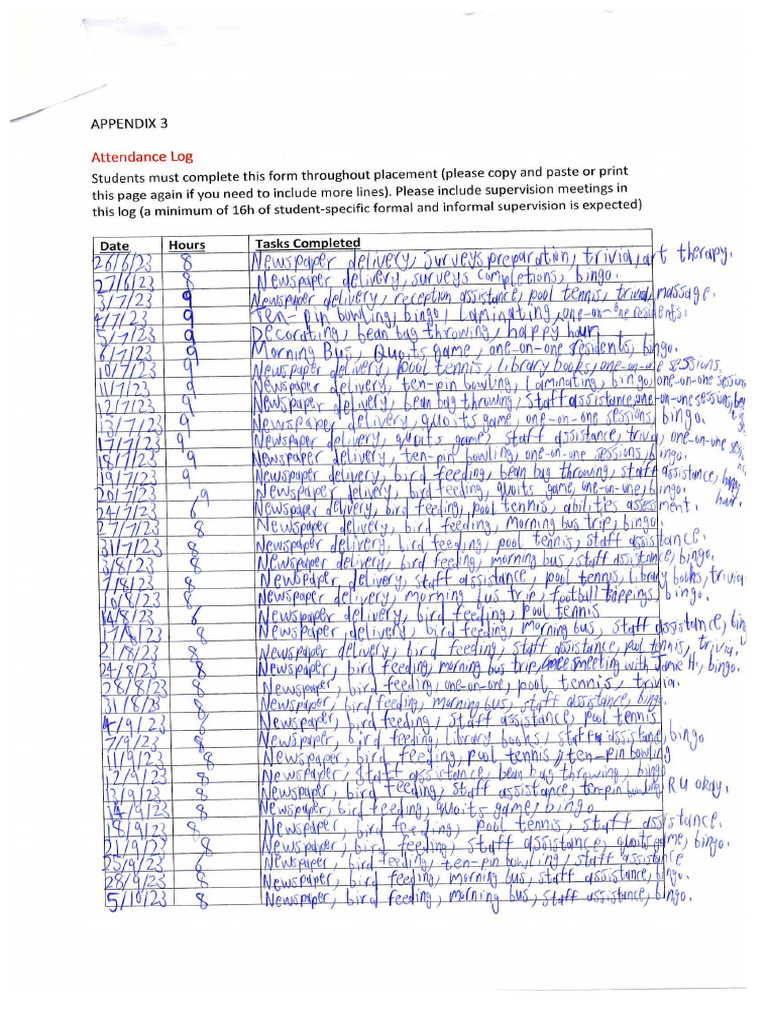 APPENDIX 3
Attendance Log
Students must complete this form throughout placement (please copy and paste or print
this page again if you need to include more lines). Please include supervision meetings in
this log (a minimum of 16h of student-specific formal and informal supervision is expected)
Date Hours Tasks Completed
26/6/23 8 Newspaper delivery, surveys preparation, trivia, art therapy.
27/6/23 8 Newspaper delivery, surveys completions, bingo.
3/7/23 9 Newspaper delivery, reception assistance, pool tennis, trivia, massage.
4/7/23 9 Ten-pin bowling, bingo, Laminating, one-on-one residents.
5/7/23 9 Decorating, bean bag throwing, happy hour
6/7/23 9 Morning Bus, Quoits game, one-on-one residents, bingo.
10/7/23 9 Newspaper delivery, pool tennis, library books, one-on-one sessions.
11/7/23 9 Newspaper delivery, ten-pin bowling, Laminating, bingo, one-on-one sessions
12/7/23 9 Newspaper delivery, bean bag throwing, staff assistance, one-on-one sessions,
13/7/23 9 Newspaper delivery, quoits game, one-on-one sessions, bingo.
17/7/23 9 Newspaper delivery, quoits game, staff assistance, trivia, one-on-one
18/7/23 9 Newspaper delivery, ten-pin bowling, one-on-one sessions, bingo.
19/7/23 9 Newspaper delivery, bird feeding, bean bag throwing, staff assistance, happy hour.
20/7/23 9 Newspaper delivery, bird feeding, quoits game, one-on-one, bingo.
24/7/23 6 Newspaper delivery, bird feeding, pool tennis, abilities assessment.
27/7/23 8 Newspaper delivery, bird feeding, morning bus trip, bingo
31/7/23 8 Newspaper delivery, bird feeding, pool tennis, staff assistance.
3/8/23 8 Newspaper delivery, bird feeding, morning bus, staff assistance, bingo.
7/8/23 8 Newspaper, delivery, staff assistance, pool tennis, library books, trivia
10/8/23 8 Newspaper delivery, morning bus trip, football tippings, bingo.
14/8/23 6 Newspaper delivery, bird feeding, pool tennis
17/8/23 8 Newspaper, delivery, bird feeding, morning bus, staff assistance, bing
21/8/23 8 Newspaper delivery, bird feeding, staff assistance, pool tennis, trivia.
24/8/23 8 Newspaper, bird feeding, morning bus trip, meeting with Janie H, bingo.
28/8/23 8 Newspaper, bird feeding, one-on-one, pool tennis, trivia.
31/8/23 8 Newspaper, bird feeding, morning bus, staff assistance, bingo.
4/9/23 6 Newspaper, bird feeding, staff assistance, pool tennis
7/9/23 8 Newspaper, bird feeding, library books, staff assistance, bingo
11/9/23 8 Newspaper, bird feeding, pool tennis, ten-pin bowling
12/9/23 8 Newspaper, staff assistance, bean bag throwing, bingo
13/9/23 8 Newspaper, bird feeding, staff assistance, ten-pin bowling, R U okay.
14/9/23 8 Newspaper, bird feeding, quoits game, bingo
18/9/23 8 Newspaper, bird feeding, pool tennis, staff assistance.
21/9/23 8 Newspaper, bird feeding, staff assistance, quoits game, bingo.
25/9/23 6 Newspaper, bird feeding, ten-pin bowling, staff assistance
28/9/23 8 Newspaper, bird feeding, morning bus, staff assistance, bingo.
5/10/23 8 Newspaper, bird feeding, morning bus, staff assistance, bingo.